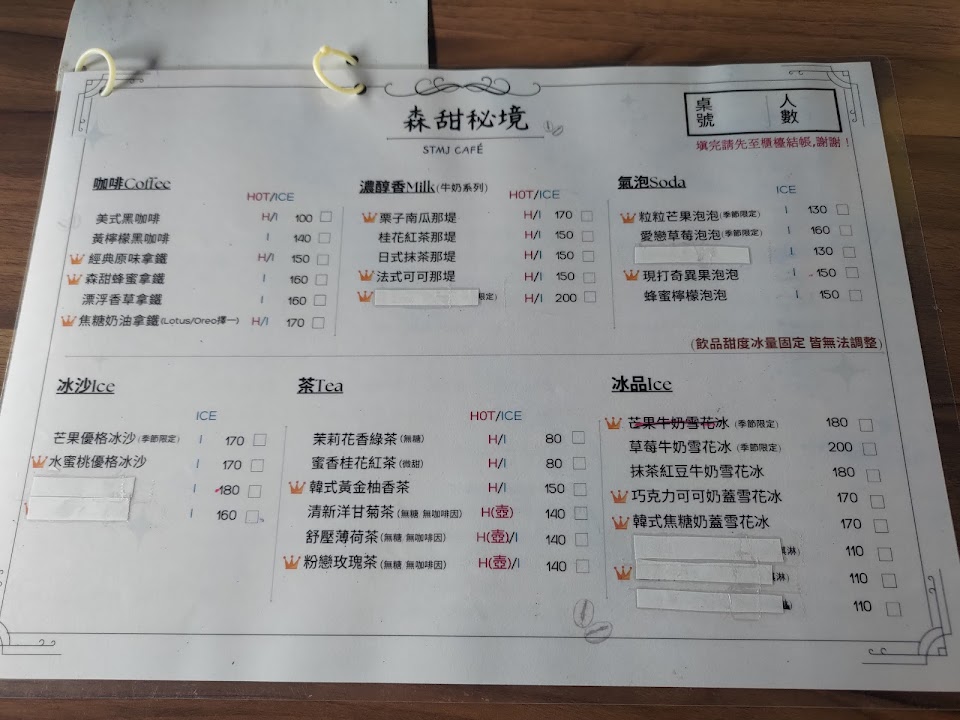 森甜秘境
STMJ CAFÉ
桌號
人數
填完請先至櫃檯結帳,謝謝！
咖啡Coffee
HOT/ICE
美式黑咖啡 H/I 100
黃檸檬黑咖啡 I 140
經典原味拿鐵 H/I 150
森甜蜂蜜拿鐵 I 160
漂浮香草拿鐵 I 160
焦糖奶油拿鐵(Lotus/Oreo擇一) H/I 170
濃醇香Milk(牛奶系列)
HOT/ICE
栗子南瓜那堤 H/I 170
桂花紅茶那堤 H/I 150
日式抹茶那堤 H/I 150
法式可可那堤 H/I 150
限定) H/I 200
氣泡Soda
ICE
粒粒芒果泡泡(季節限定) I 130
愛戀草莓泡泡(季節限定) I 160
I 130
現打奇異果泡泡 I 150
蜂蜜檸檬泡泡 I 150
(飲品甜度冰量固定 皆無法調整)
冰沙Ice
ICE
芒果優格冰沙(季節限定) I 170
水蜜桃優格冰沙 I 170
I 180
I 160
茶Tea
HOT/ICE
茉莉花香綠茶(無糖) H/I 80
蜜香桂花紅茶(微甜) H/I 80
韓式黃金柚香茶 H/I 150
清新洋甘菊茶(無糖 無咖啡因) H(壺) 140
舒壓薄荷茶(無糖 無咖啡因) H(壺)/I 140
粉戀玫瑰茶(無糖 無咖啡因) H(壺)/I 140
冰品Ice
芒果牛奶雪花冰 (季節限定) 180
草莓牛奶雪花冰 (季節限定) 200
抹茶紅豆牛奶雪花冰 180
巧克力可可奶蓋雪花冰 170
韓式焦糖奶蓋雪花冰 170
淇淋) 110
淇淋) 110
110